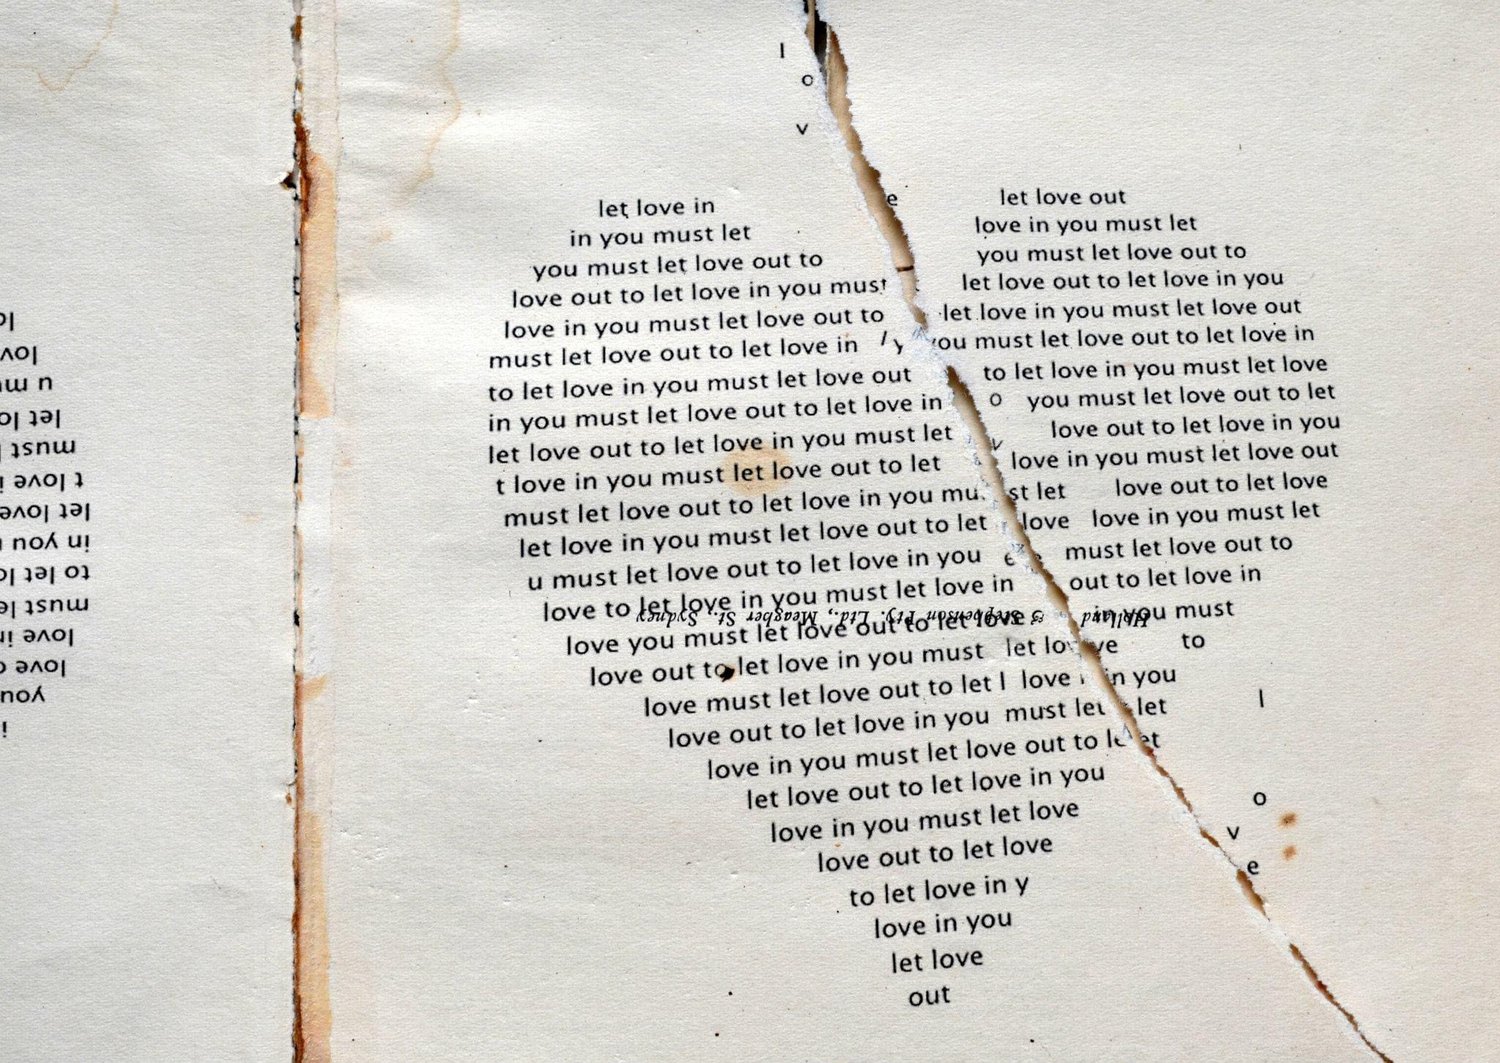 l
o
v
e
let love in
let love out
in you must let
love in you must let
you must let love out to
you must let love out to
love out to let love in you must
let love out to let love in you
love in you must let love out to
let love in you must let love out
must let love out to let love in y
you must let love out to let love in
to let love in you must let love out
to let love in you must let love
in you must let love out to let love in
o
you must let love out to let
let love out to let love in you must let
v
love out to let love in you
t love in you must let love out to let
love in you must let love out
must let love out to let love in you mu
st let
love out to let love
let love in you must let love out to let
love
love in you must let
u must let love out to let love in you
e
must let love out to
love to let love in you must let love in
out to let love in
Holland & Stephenson Pty. Ltd., Meagher St., Sydney
love you must let love out to let love
in you must
love out to let love in you must
let lo
ve
to
love must let love out to let l
love
in you
love out to let love in you must let
let
l
love in you must let love out to l
et
let love out to let love in you
o
love in you must let love
v
love out to let love
e
to let love in y
love in you
let love
out
lo
lov
u mu
let lo
must l
t love i
let love
in you
to let lo
must le
love in
love o
you
i